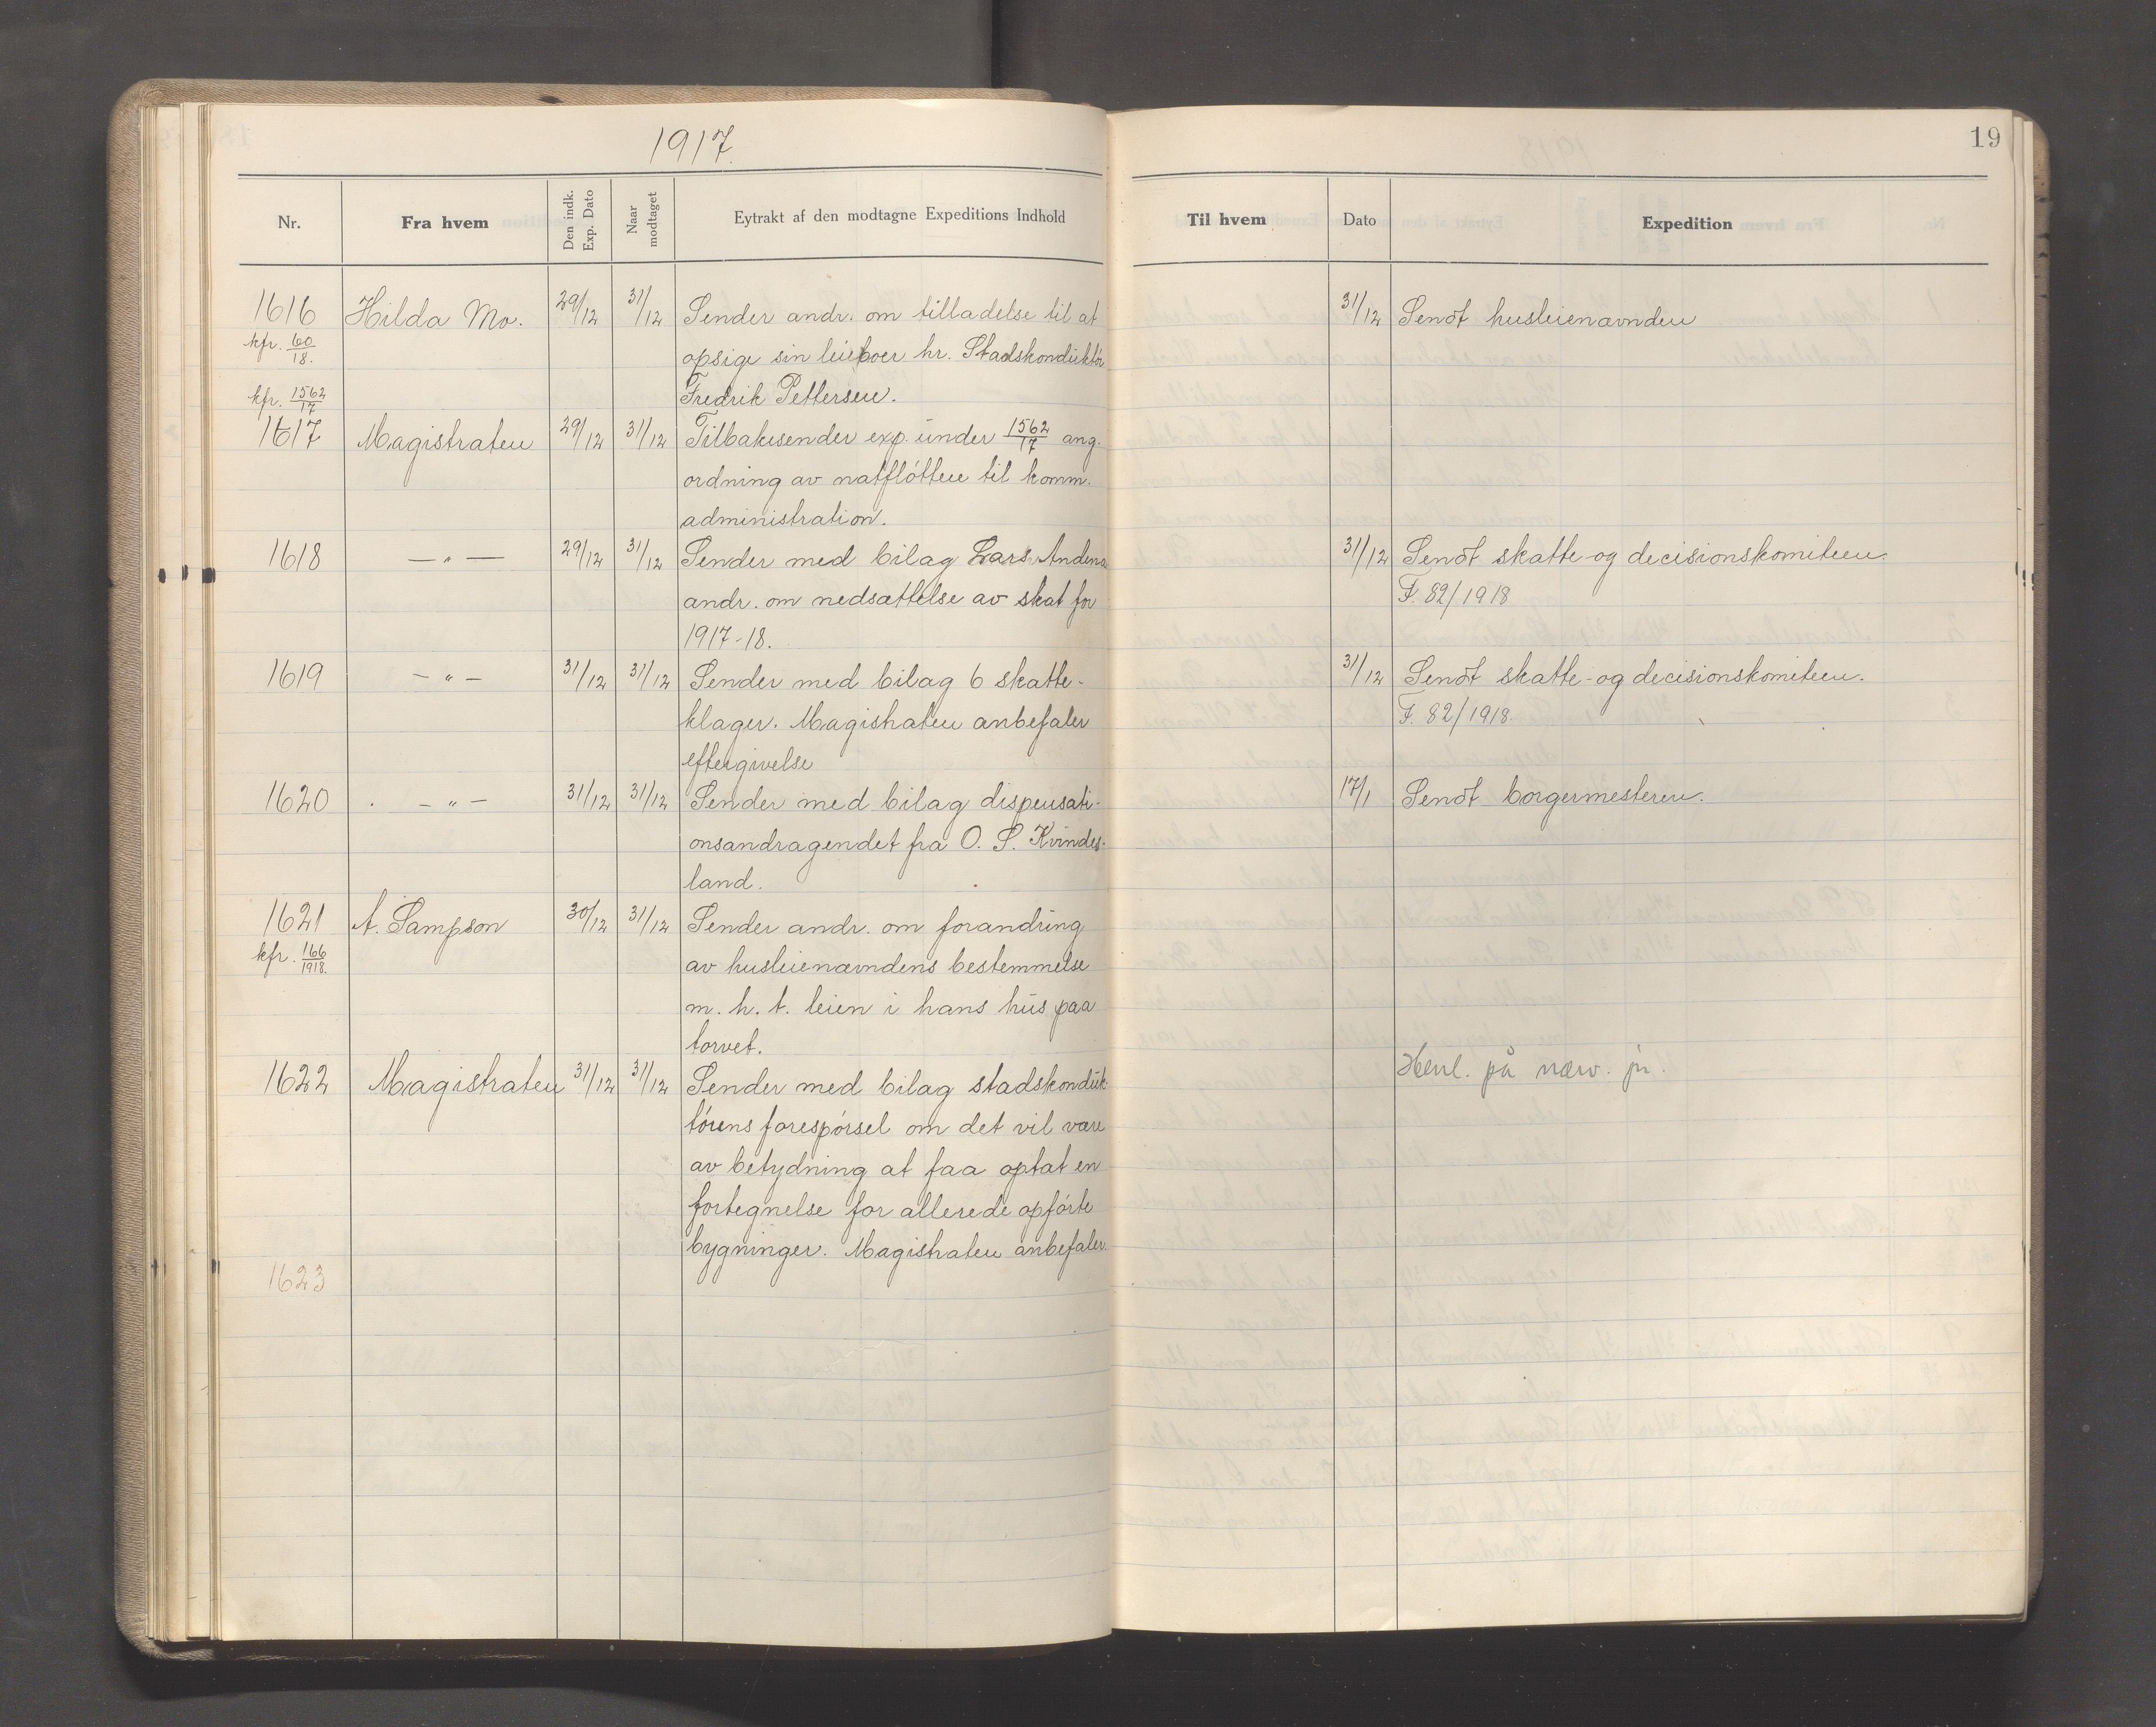 1917.
19
Nr.
Fra hvem
Den indk. Exp. Dato
Naar modtaget
Eytrakt af den modtagne Expeditions Indhold
Til hvem
Dato
Expedition
1616 Hilda Mo. 29/12 31/12 Sender andr. om tilladelse til at 31/12 Sendt husleienævnden
kfr. 60/18. opsige sin leieboer hr. Stadskonduktør
kfr. 1562/17 Fredrik Pettersen.
1617 Magistraten 29/12 31/12 Tilbakesender exp. under 1562/17 ang.
ordning av natfløtten til komm.
administration.
1618 — " — 29/12 31/12 Sender med bilag Lars Andens 31/12 Sendt skatte- og decisionskomiteen.
andr. om nedsættelse av skat for F. 82/1918
1917-18.
1619 — " — 31/12 31/12 Sender med bilag 6 skatte- 31/12 Sendt skatte- og decisionskomiteen.
klager. Magistraten anbefaler F. 82/1918
eftergivelse
1620 — " — 31/12 31/12 Sender med bilag dispensati- 17/1 Sendt borgermesteren.
onsandragendet fra O. S. Kvindes-
land.
1621 A. Sampson 30/12 31/12 Sender andr. om forandring
kfr. 166/1918. av husleienævndens bestemmelse
m. h. t. leien i hans hus paa
torvet.
1622 Magistraten 31/12 31/12 Sender med bilag stadskonduk- Henl. på nærv. jr.
tørens forespørsel om det vil være
av betydning at faa optat en
fortegnelse for allerede opførte
bygninger. Magistraten anbefaler.
1623